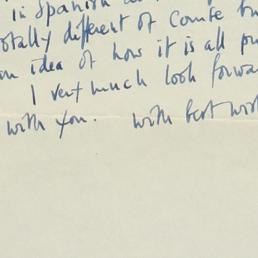 in Spanish
totally different of course
an idea of how it is all
I very much look forwa
with you. with best wis